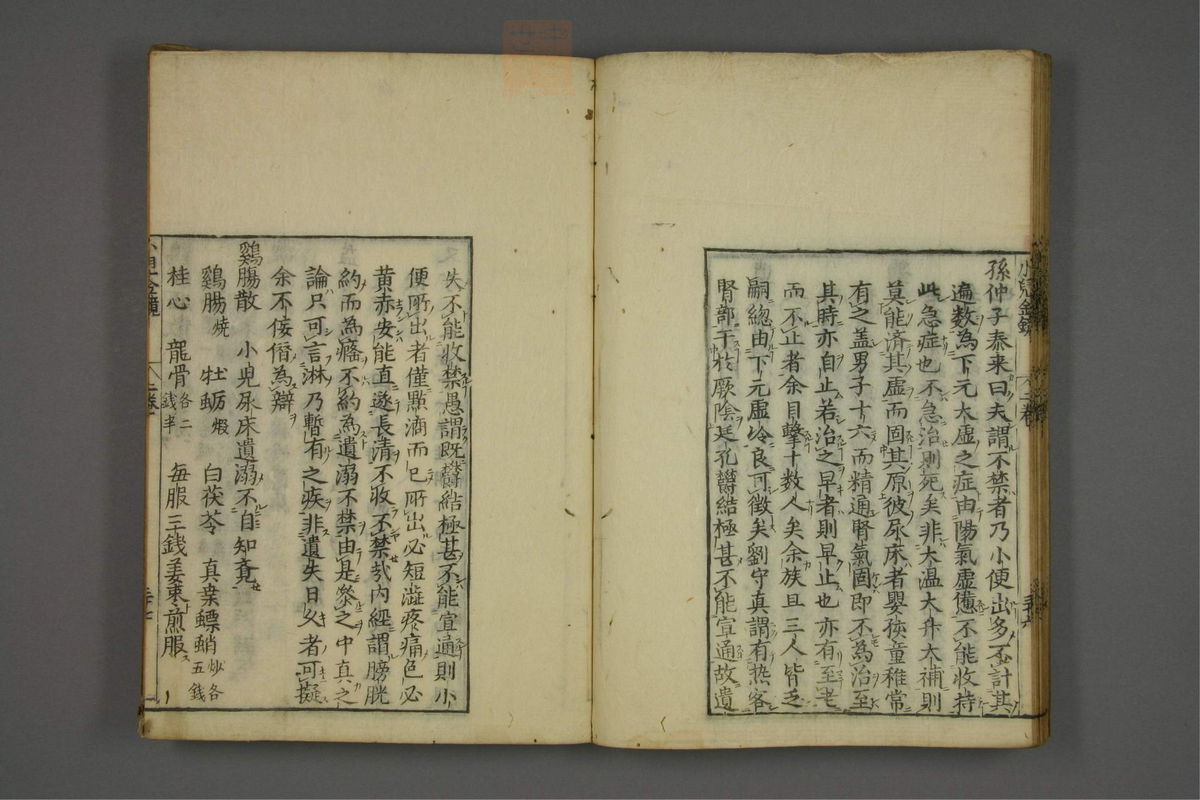 孫仲子泰来曰夫謂不禁者乃小便出多不計其
遍数為下元太虚之症由陽氣虚憊不能收持
此急症也不急治則死矣非大温大升大補則
莫能済其虚而固其原彼尿床者嬰孩童稚常
有之盖男子十六而精通腎氣固即不為治至
其時亦自止若治之早者則早止也亦有至老
而不止者余目擊十数人矣余族且三人皆乏
嗣總由下元虚冷良可徴矣劉守真謂有热客
腎部干於厥陰廷孔欝結極甚不能宣通故遺
失不能收禁愚謂既欝結極甚不能宣通則小
便所出者僅點滴而已所出必短澁疼痛色必
黄赤安能直遂長清不收不禁哉内經謂膀胱
不約而為癃不約為遺溺不禁由是叅之中真之
論只可言淋乃暫有之疾非遺失日久者可擬
余不佞僭為辯
鷄腸散 小児尿床遺溺不自知竟
鷄腸燒 牡蛎煆 白茯苓 真桒螵蛸炒各五錢
桂心 龍骨各二錢半 毎服三錢姜枣煎服